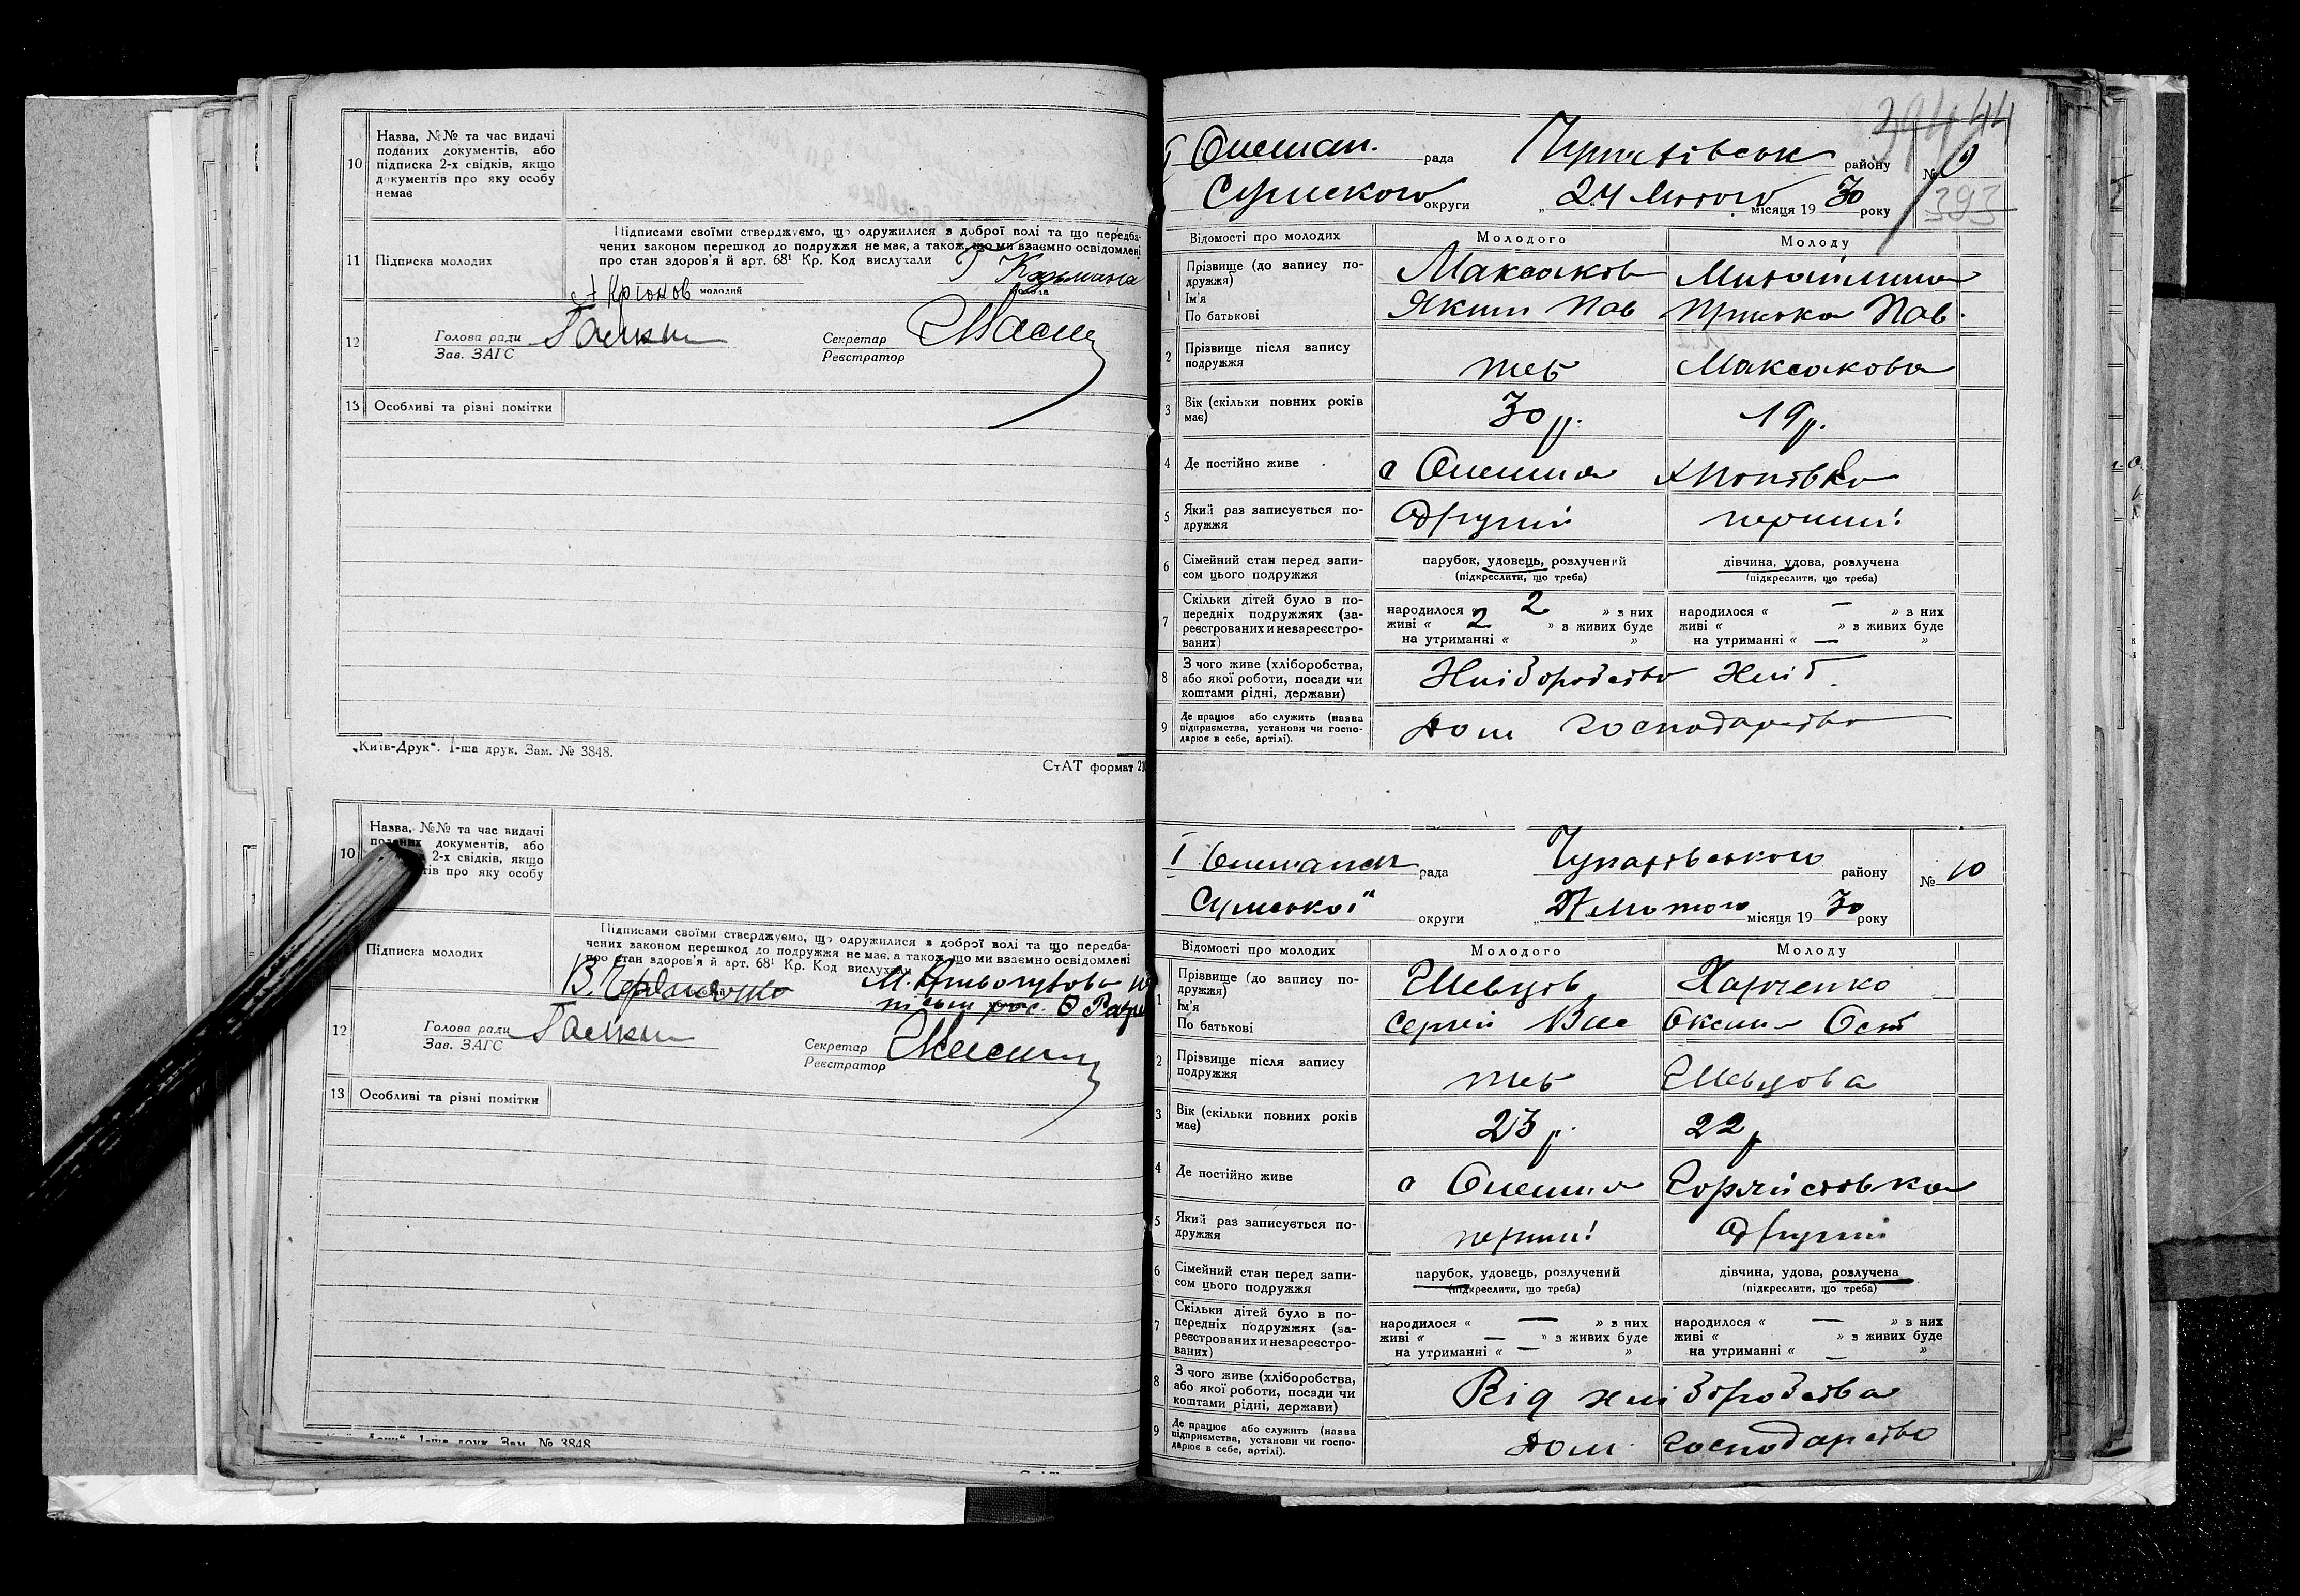 10 Назва, №№ та час видачі
поданих документів, або
підписка 2-х свідків, якщо
документів про яку особу
немає
Підписами своїми стверджуємо, що одружилися з доброї волі та що передба-
чених законом перешкод до подружжя не має, а також, що ми взаємно освідомлені
11 Підписка молодих
про стан здоров'я й арт. 68¹ Кр. Код вислухали
Крюков молодий
12 Голова ради Галкин Секретар
Зав. ЗАГС Реєстратор
13 Особливі та різні помітки
„Київ-Друк". 1-ша друк. Зам. № 3848.
СтАТ формат
10 Назва, №№ та час видачі
поданих документів, або
2-х свідків, якщо
про яку особу
Підписами своїми стверджуємо, що одружилися з доброї волі та що передба-
чених законом перешкод до подружжя не має, а також, що ми взаємно освідомлені
Підписка молодих
про стан здоров'я й арт. 68¹ Кр. Код вислухали
12 Голова ради Галкин Секретар
Зав. ЗАГС Реєстратор
13 Особливі та різні помітки
1-ша друк. Зам. № 3848
394 44
рада району № 9
Сумского округи „24 Лютого місяця 1930 року 393
Відомості про молодих Молодого Молоду
1 Прізвище (до запису по-
дружжя) Максаков Михайлина
Ім'я
По батькові Яким Пав Приська Пав.
2 Прізвище після запису
подружжя теж Максакова
3 Вік (скільки повних років
має) 30 р. 19 р.
4 Де постійно живе с Олешня
5 Який раз записується по-
дружжя другий перший
6 Сімейний стан перед запи-
сом цього подружжя
парубок, удовець, розлучений дівчина, удова, розлучена
(підкреслити, що треба) (підкреслити, що треба)
7 Скільки дітей було в по-
передніх подружжях (за-
реєстрованих и незареєстро-
ваних)
народилося « 2 » з них народилося « — » з них
живі « 2 » з живих буде живі « » з живих буде
на утриманні « » на утриманні « — »
8 З чого живе (хліборобства,
або якої роботи, посади чи
коштами рідні, держави) Хліборобство Хліб.
9 Де працює або служить (назва
підприємства, установи чи госпо-
дарює в себе, артілі). Дом господарство
рада Чупахівського району № 10
Сумської округи „27 Лютого місяця 1930 року
Відомості про молодих Молодого Молоду
1 Прізвище (до запису по-
дружжя) Шевцов Харченко
Ім'я
По батькові Сергій Вас Оксана Ост
2 Прізвище після запису
подружжя теж Шевцова
3 Вік (скільки повних років
має) 23 р. 22 р
4 Де постійно живе с Олешня
5 Який раз записується по-
дружжя перший другий
6 Сімейний стан перед запи-
сом цього подружжя
парубок, удовець, розлучений дівчина, удова, розлучена
(підкреслити, що треба) (підкреслити, що треба)
7 Скільки дітей було в по-
передніх подружжях (за-
реєстрованих и незареєстро-
ваних)
народилося « — » з них народилося « — » з них
живі « — » з живих буде живі « » з живих буде
на утриманні « — » на утриманні « — »
8 З чого живе (хліборобства,
або якої роботи, посади чи
коштами рідні, держави) Від хліборобства
9 Де працює або служить (назва
підприємства, установи чи госпо-
дарює в себе, артілі). Дом господарство